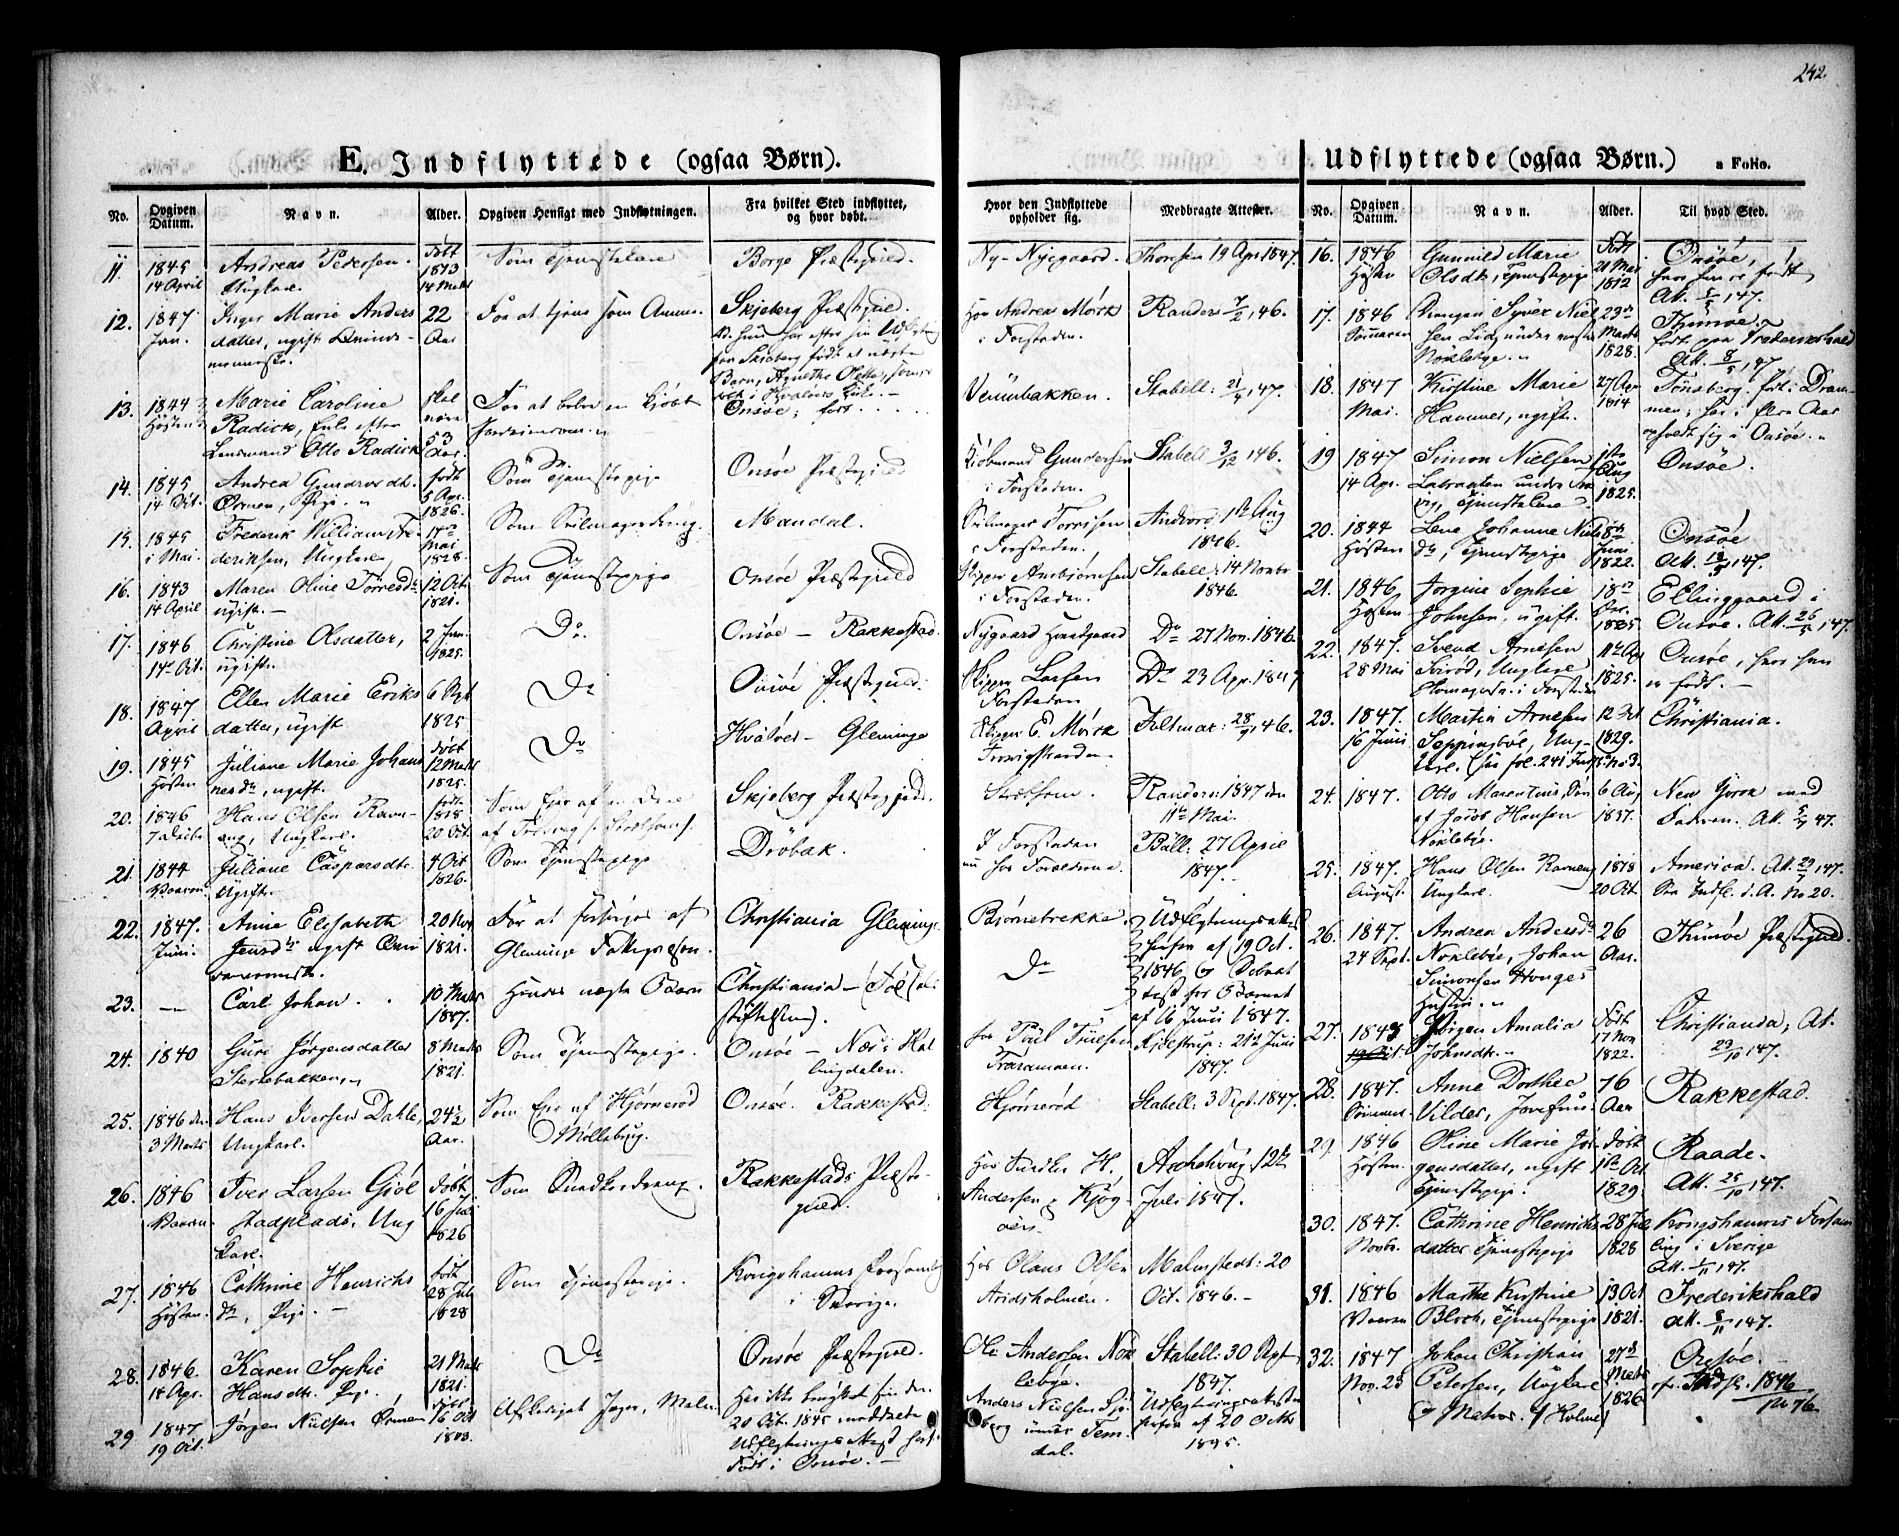 242.
E. Indflyttede (ogsaa Børn).
No.
Opgiven Datum.
Navn.
Alder.
Opgiven Hensigt med Indflytningen.
Fra hvilket Sted indflyttet, og hvor døbt.
11.
1845
14 April
Andreas Pedersen.
Ungkarl.
Født
1813
14 Marts
Som Tjenestekarl
Borge Præstegield.
12.
1847
Jan.
Inger Marie Anders
datter, ugift
22
Aar
For at tjene som Amme.
Skjeberg Præstegield.
13.
1844
Høsten
Marie Caroline
Radick, Enke efter
Lensmand Otto Radick
53
Aar.
Onsøe, født
14.
1845
14 Oct.
Andrea Gundersdt.
Ørmen, Pige
født
5 Apr.
1826.
Som Tjenestepige
Onsøe Præstegield
15.
1845
i Mai
Frederik William Fre
deriksen, Ungkarl
17de
Mai
1828.
Mandal.
16.
1843
14 April
Maren Oline Torresdr.
ugift. —
12 Oct.
1821.
Som Tjenestepige
Onsøe Præstegield
17.
1846
14 Oct.
Christine Olsdatter,
ugift.
2 Jan.
1825.
Do.
Onsøe — Rakkestad.
18.
1847
April
Ellen Marie Eriks
datter, ugift
6 Spt
1825
Do
Onsøe Præstegield.
19.
1845
Høsten
Juliane Marie Johan
nesdr, ugift.
født
12 Marts
1825.
Do
Hvaløer — Glemminge
20.
1846
Hans Olsen Ravn-
eng, Ungkarl.
født
1818
20 Oct.
Skjeberg Præstegjeld.
21.
1844
Vaaren
Juliane Caspersdtr.
Ugift.
4 Oct
1826.
Som Tjenestepige
Drøbak.
22.
1847.
Juni.
Anne Elisabeth
Jensdtr ugift
20 Nov
1821.
For at forsørges af
Glemminge Fattigvæsen.
Christiania Glemminge.
23.
—
Carl Johan.
10 Marts
1847.
Hendes uægte Barn
Christiania — (Fødsels
stiftelsen).
24.
1840
Guri Jørgensdatter
Stertebakken,
8 Marts
1821.
Som Tjenestepige.
Onsøe — Næs: Hal
lingdalen.
25.
1846 den
3 Marts
Hans Iversen Dahle,
Ungkarl.
24½
Aar.
Som Eier af Hjørnerød
Møllebrug.
Onsøe. Rakkestad.
26.
1846
Vaaren
Iver Larsen Giøl
stadplads, Ung
karl.
født
16 Juli
1826
Som Snedkerdreng.
Rakkestads Præste-
gield.
27.
1846
Høsten.
Cathrine Henrichs
dr, Pige. —
født
28 Juli
1828
Som Tjenestepige.
Kongshamns Forsamling
i Sverige.
28.
1846.
14 Apr.
Karen Sophie
Hansdtr. Pige.
21 Marts
1821.
Do
Onsøe Præstegield.
29
1847
19 Oct.
Jørgen Nielsen Ørmen
født
16 Oct
1803.
Har ikke brugket sin den
20 Oct. 1845 meddeelte
Udflytnings Attest før.
Født i Onsøe. —
Hvor den Indflyttede opholder sig.
Medbragte Attester.
Ny-Nygaard.
Thoresen 19 Apr. 1847.
Hos Andreas Mørck
i Forstaden.
Randers 7/2, 46.
Stabell: 21/4, 47.
Kiøbmand Gundersen
i Forstaden.
Stabell 3/12 46.
i Forstaden.
1ste Aug
1846.
Skipper Ambjörnsen
i Forstaden.
Stabell: 14 Novbr
1846.
Do 27 Nov. 1846.
Skipper Larsen
Forstaden
Do 23 Apr. 1847
Skipper E. Mørck
Feltmar: 28/9, 46.
Randers: 1847 den
11te Mai.
I Forstaden
nu hos Forældrene
Ball: 27 April
1847.
Bjørnebekke.
Udflytningsattest
af 19 Oct.
1846 og Debat
test for Barnet
af 16 Juni 1847.
Do
21de Juni
1847.
Hjørnerød
Stabell: 3 Sept. 1847.
Hos Snedker H.
Andersen,
12te
Juli 1847.
Hos Olaus Olsen
Aridsholmen.
Malmstedt: 20
Oct. 1846. —
Ole Andersen Nök
lebye.
Stabell: 30 Sept
1847.
Anders Nielsen
Udflytningsattest
af 20 Octbr
1845.
Udflyttede (ogsaa Børn.)
a Folio.
No.
Opgiven Datum.
Navn.
Alder.
Til hvad Sted.
16.
1846
Høsten
Gunnild Marie
Olsdtr, Tjenestepige
Født
21 Mai
1812
Onsøe,
hvor hun er født
Att. 5/5, 47.
17.
1846
Sommeren
Syver Niel
sen Lie, under
Nöklebye.
23de
Marts
1828.
Thunøe.
født paa Frederikshald
Att. 8/5, 47
18.
1847
Mai.
Kirstine Marie
Hammer, ugift.
27 Apr
1814
Tønsberg. født i Dram
men; har i flere Aar
opholdt sig i Onsøe.
19
1847
14 Apr.
Simon Nielsen
Tjenestekarl
1ste
Aug
1825.
Onsøe.
20.
1844
Høsten
Lene Johanne Niels
dr, Tjenestepige
8de
Juni
1822.
Onsøe
Att. 19/5, 47.
21.
1846
Høsten
Jørgine Sophie
Johnsen, ugift.
18de
Elinggaard i
Onsøe. Att. 26/5, 47.
22.
1847.
28 Mai
Svend Arnesen
Ungkarl
i Forstaden
11te Apr
1825.
Onsøe, hvor han
er født. —
23.
1847.
16 Juni
Martin Arnesen
Seppingbøe, Ung-
karl. (hid fol. 241 Indf. No 3.
12 Oct
1829.
Christiania.
24.
1847.
Otto Marentius, Søn
af Jacob Hansen
Nöklebye.
6 Aug
1837.
New York med
Faderen. Att. 5/7 47.
25.
1847.
August.
Hans Olsen Ravneng
Ungkarl.
1818
20 Oct.
America. Att. 29/7, 47.
See Indfl. d. A. No 20.
26.
1847.
24 Sept.
Andrea Andersdr
Nöklebye, Johan
Simonsen Hauges
Hustru.
26
Aar.
Thunøe Præstegield.
27.
Jørgen Amalia
Johnsdtr.
Født
17 Nov
1822.
Christiania, Att.
29/10, 47.
28.
1847.
Sommer
Anne Dorthee
Vilder,
76
Aar
Rakkestad.
29.
1846
Høsten
Oline Marie Jør
gensdatter, ugift
Tjenestepige.
født
1ste Oct.
1829.
Raade.
Att. 25/10, 47.
30.
1847.
Novbr.
Cathrine Henriks
datter Tjenestepige
28 Juli
1828
Kongshamns Forsam
ling i Sverige
Att. 1/11, 47.
31.
1846
Vaaren
Marthe Kirstine
Block, Tjenestepige
13 Oct
1821.
Frederikshald
att. 8/11, 47.
32.
1847
Nov. 25
Johan Christian
Petersen, Ungkarl
og Matros.
27de
Marts
1826
Onsøe.
cfr. Indfl. 1846
No 76.